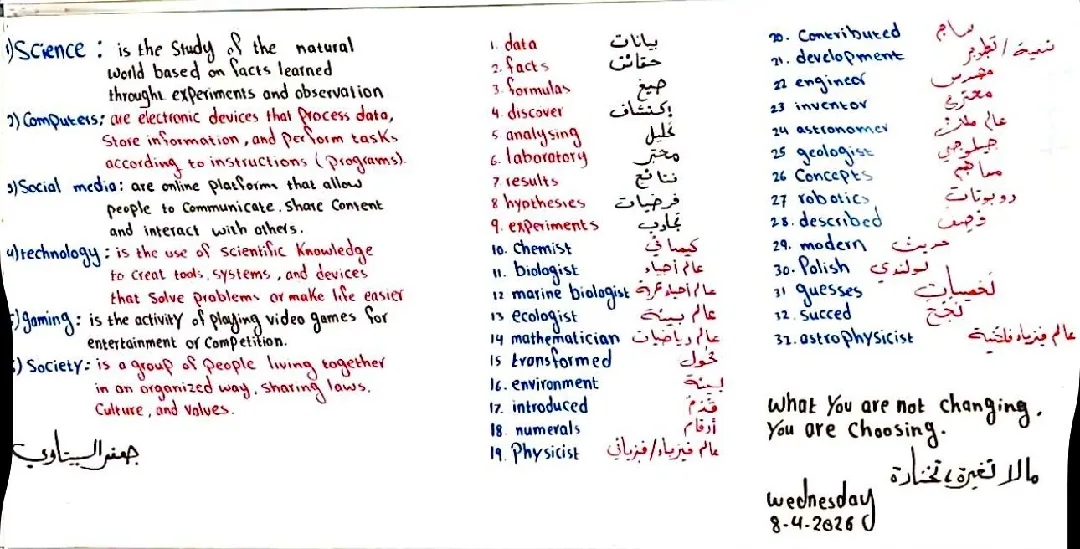 1) Science : is the study of the natural
world based on facts learned
throught experiments and observation
2) Computers: are electronic devices that process data,
store information, and perform tasks
according to instructions (programs).
3) Social media: are online platforms that allow
people to communicate. share content
and interact with others.
4) technology: is the use of scientific knowledge
to creat tools, systems, and devices
that solve problems or make life easier
5) gaming: is the activity of playing video games for
entertainment or competition.
6) Society: is a group of people living together
in an organized way, sharing laws,
culture, and values.
1. data بيانات
2. facts حقائق
3. formulas صيغ
4. discover إكتشاف
5. analysing تحليل
6. laboratory مختبر
7 results نتائج
8 hypothesies فرضيات
9. experiments تجارب
10. Chemist كيميائي
11. biologist عالم أحياء
12 marine biologist عالم أحياء بحرية
13 ecologist عالم بيئة
14 mathematician عالم رياضيات
15 transformed تحول
16. environment بيئة
17. introduced قدم
18. numerals أرقام
19. Physicist عالم فيزياء/فيزيائي
20. Contributed ساهم
21. development تنمية/تطوير
22 engineer مهندس
23 inventor مخترع
24 astronomer عالم
25 geologist جيلوجي
26 Concepts مفاهيم
27 robotics روبوتات
28. described
29. modern حديث
30. Polish بولندي
31 guesses تخمينات
32. succed نجح
32. astrophysicist عالم فيزياء فلكية
What You are not changing.
You are choosing.
مالا تغيرة، تختارة
wednesday
8-4-2026
جعفر